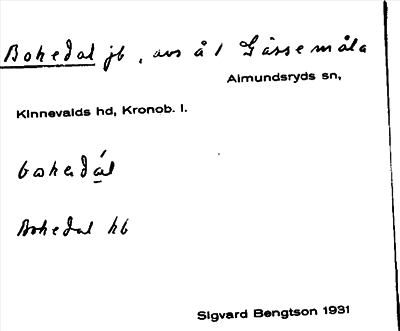 Bohedal jb, avs å 1 Gåssemåla
Almundsryds sn,
Kinnevalds hd, Kronob. l.
Bohedal hb
Sigvard Bengtson 1931